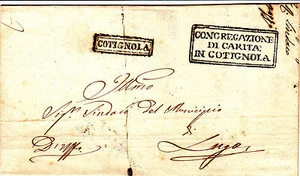 COTIGNOLA
CONGREGAZIONE
DI CARITA'
IN COTIGNOLA
Illmo
Sigr Sindaco del Municipio
di
Lugo